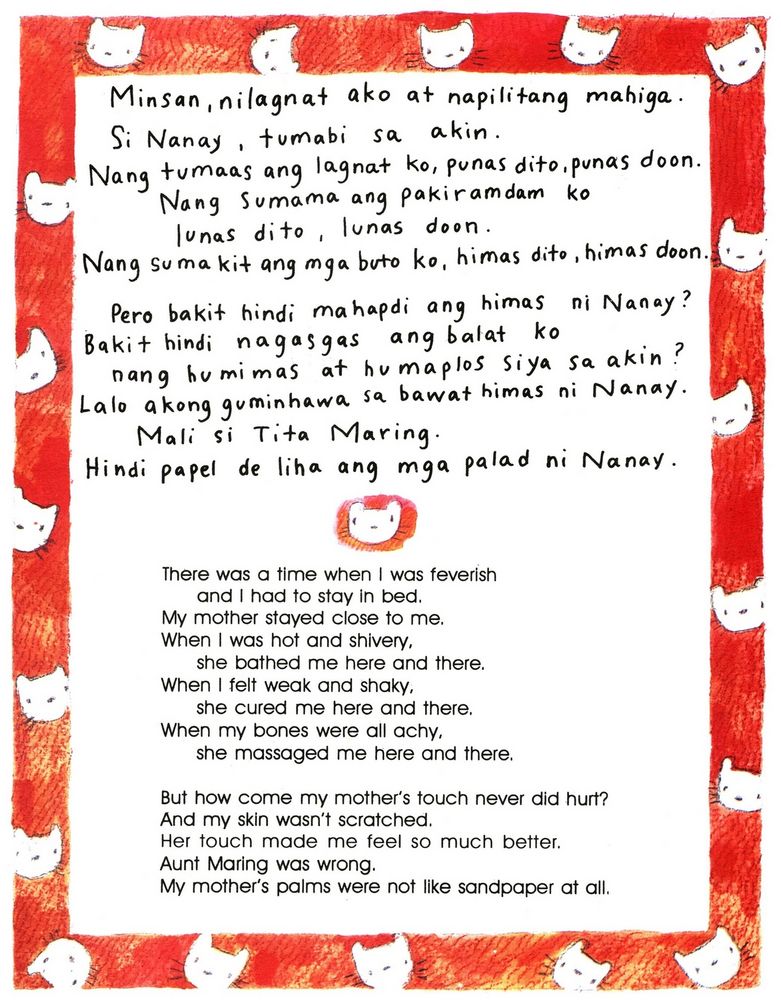 Minsan, nilagnat ako at napilitang mahiga.
Si Nanay, tumabi sa akin.
Nang tumaas ang lagnat ko, punas dito, punas doon.
Nang sumama ang pakiramdam ko
lunas dito, lunas doon.
Nang sumakit ang mga buto ko, himas dito, himas doon.
Pero bakit hindi mahapdi ang himas ni Nanay?
Bakit hindi nagasgas ang balat ko
nang humimas at humaplos siya sa akin?
Lalo akong guminhawa sa bawat himas ni Nanay.
Mali si Tita Maring.
Hindi papel de liha ang mga palad ni Nanay.
There was a time when I was feverish
and I had to stay in bed.
My mother stayed close to me.
When I was hot and shivery,
she bathed me here and there.
When I felt weak and shaky,
she cured me here and there.
When my bones were all achy,
she massaged me here and there.
But how come my mother's touch never did hurt?
And my skin wasn't scratched.
Her touch made me feel so much better.
Aunt Maring was wrong.
My mother's palms were not like sandpaper at all.